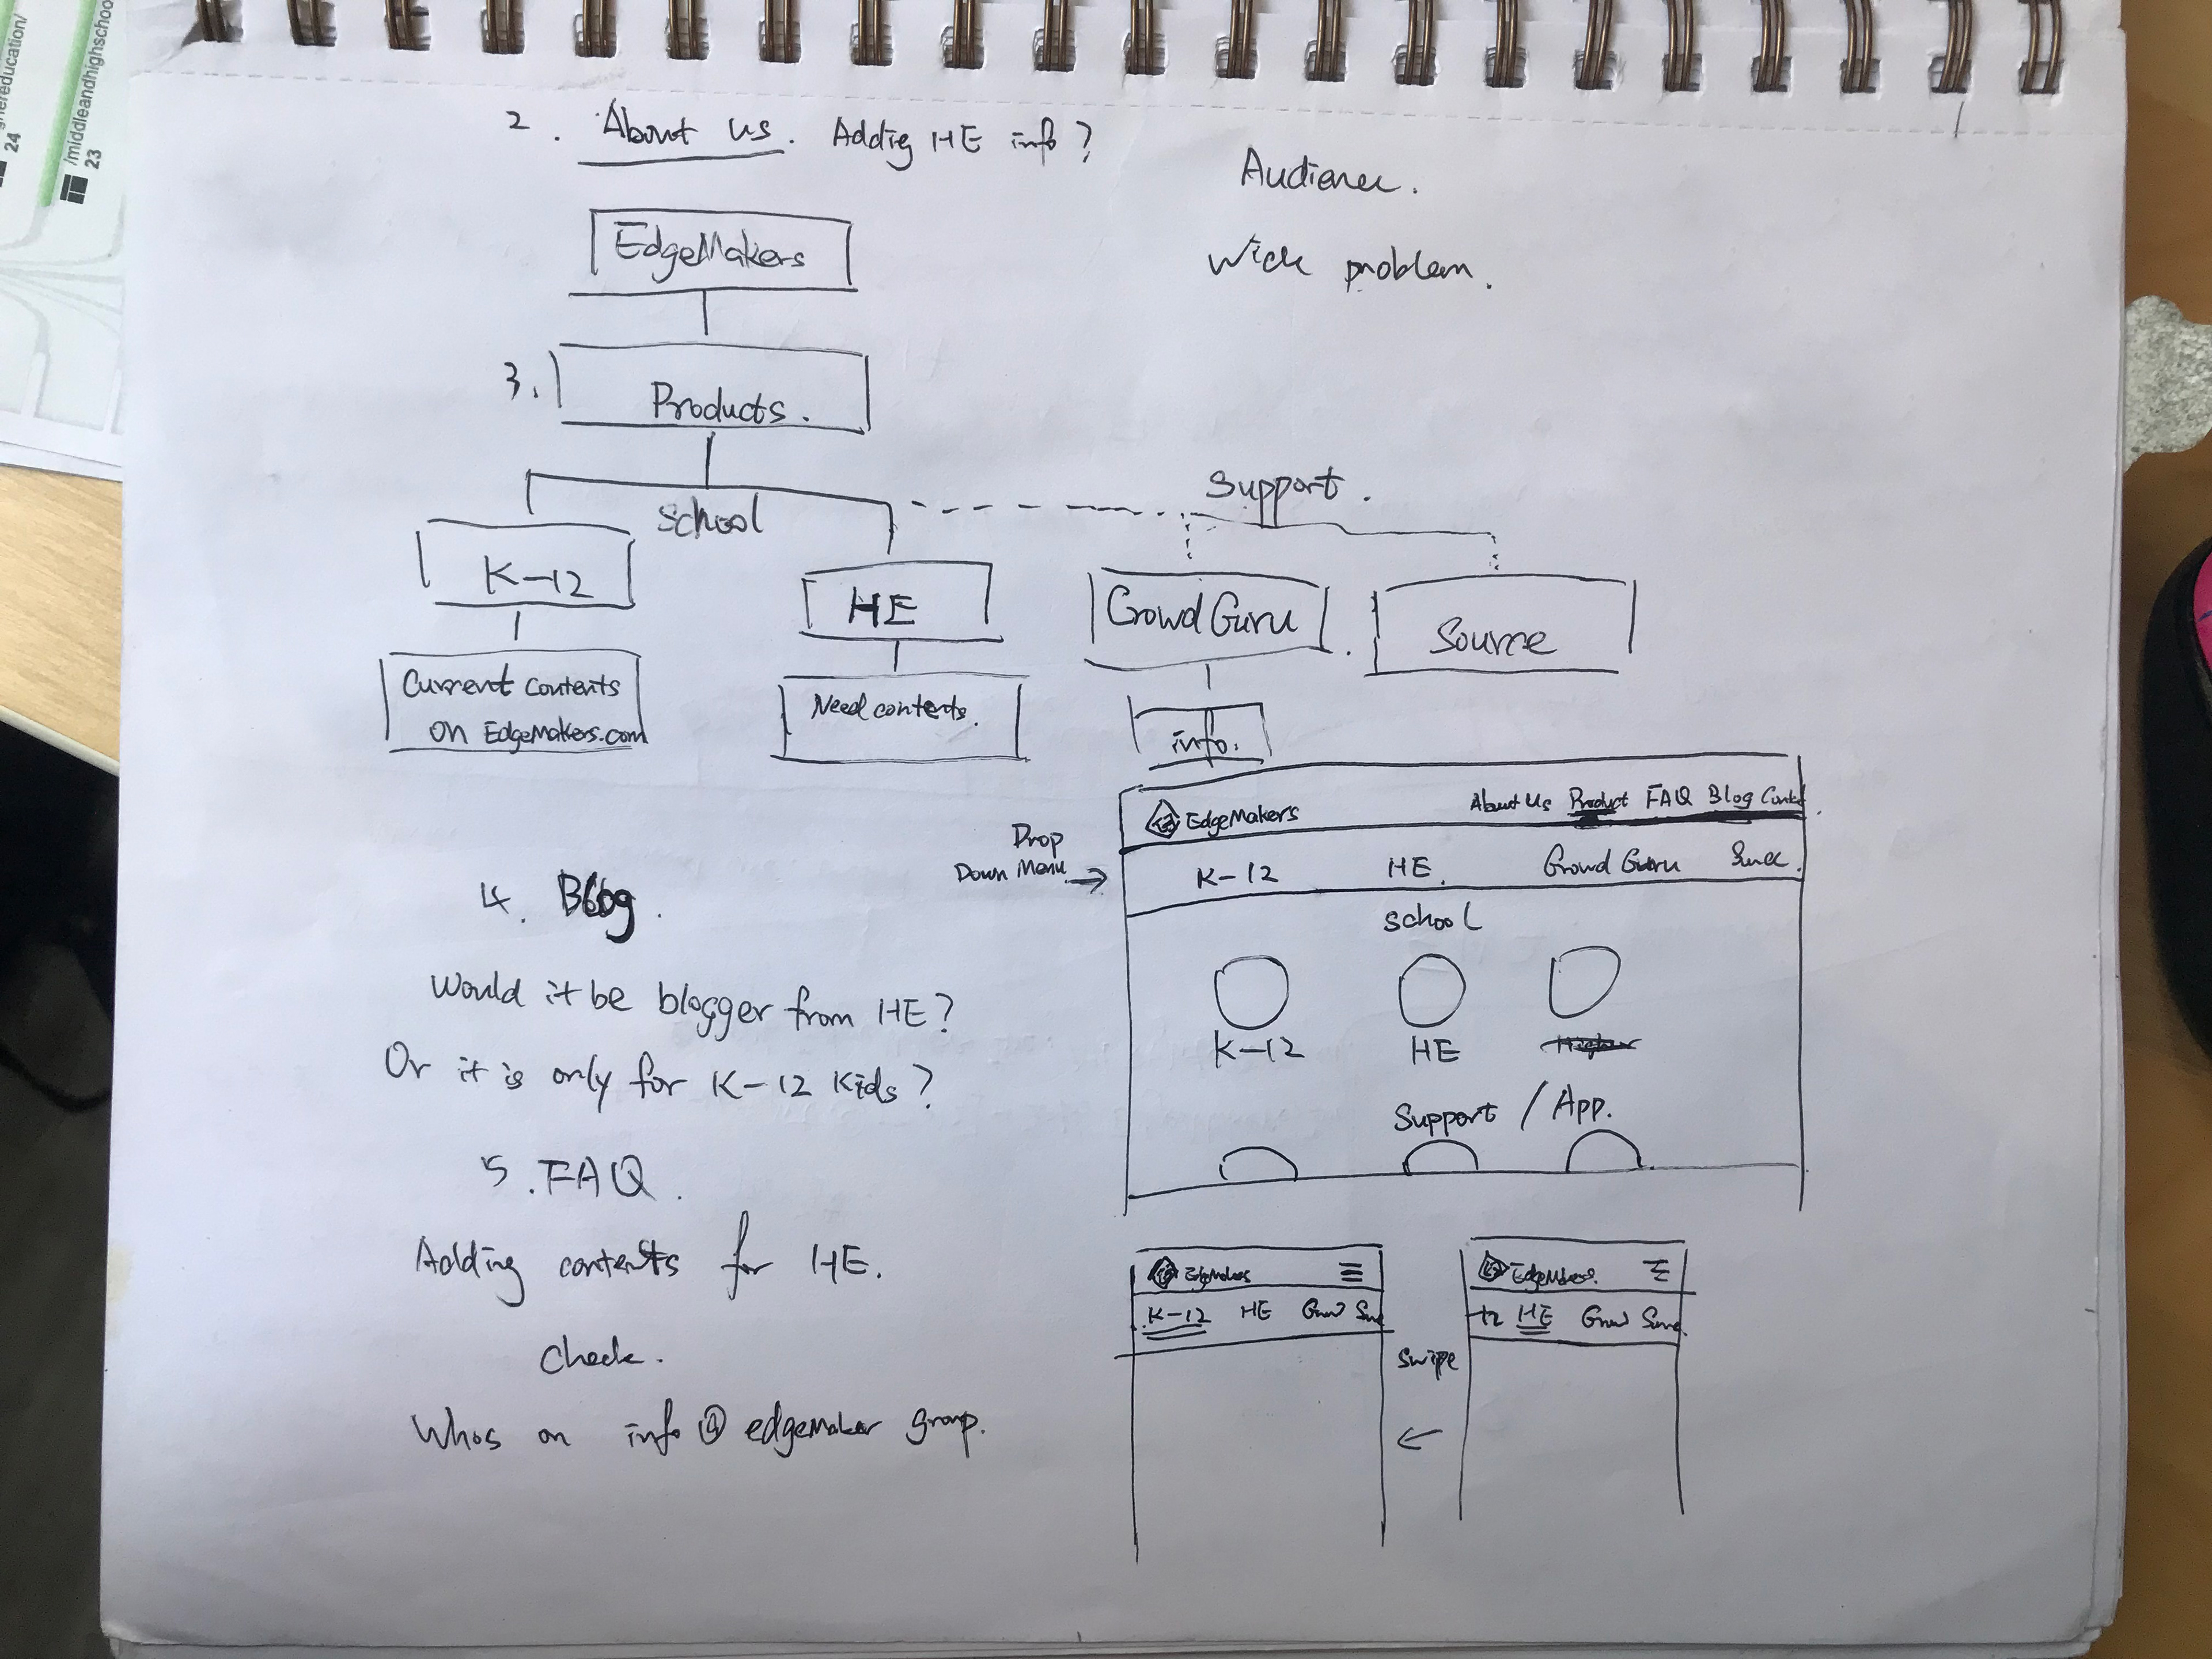 /middleandhighschoo
23
24
2. About us. Addig HE info?
Audience.
Wick problem.
EdgeMakers
3. Products.
Support.
School
K-12
HE
Crowd Guru
Source
Current Contents
on EdgeMakers.com
Need contents.
info.
EdgeMakers About Us Product FAQ Blog
Drop
Down Menu →
K-12 HE. Crowd Guru
School
K-12 HE
Support / App.
4. Blog.
Would it be blogger from HE?
Or it is only for K-12 Kids?
5. FAQ.
Adding contents for HE.
Check.
Whos on info@edgemaker group.
EdgeMakers
K-12 HE
Swipe
←
EdgeMakers
12 HE